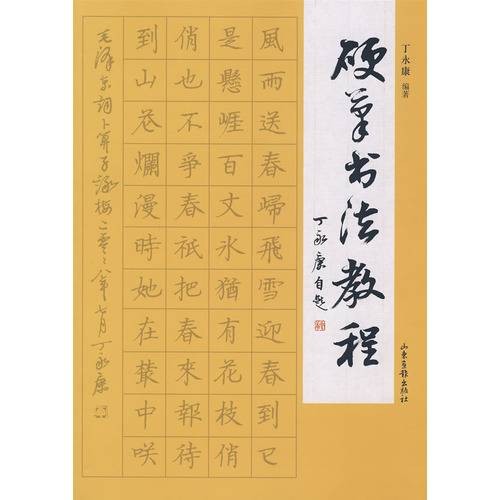 硬笔书法教程
丁永康 编著
丁永康自题
山东画报出版社
風雨送春歸飛雪迎春到已
是懸崕百丈冰猶有花枝俏
俏也不爭春祇把春來報待
到山花爛漫時她在叢中咲
毛泽东詞卜算子詠梅二零零八年 月丁永康